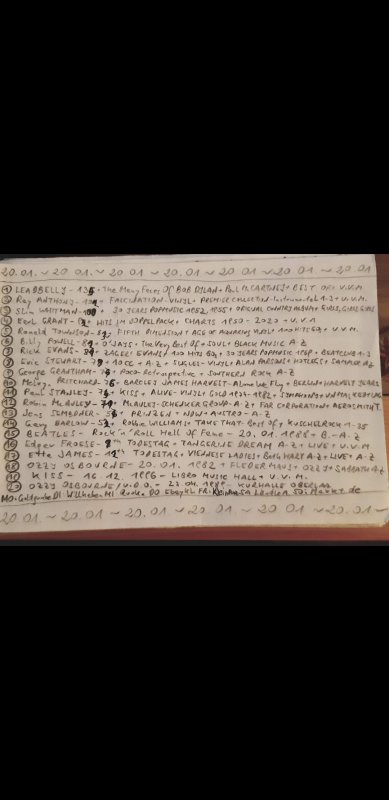 20.01.~20.01~20.01~20.01~20.01~20.01~20.01
① LEADBELLY - 135 + The Many Faces Of BOB DYLAN + Paul McCARTNEY + BEST OF + U.V.M.
② Ray ANTHONY - + FASCINATION - VINYL + PREMIER COLLECTION - Instrumental 1-3 + U.V.M.
③ Slim WHITMAN - 100 + 30 YEARS POPMUSIC 1952, 1955 + OFFICIAL COUNTRY ALBUM + GIRLS, GIRLS, GIRLS
④ Earl GRANT - + HITS IM DOPPELPACK + CHARTS 1950 - 2020 + U.V.M
⑤ Ronald TOWNSON - + FIFTH DIMENSION + AGE OF AQUARIUS VINYL + 100 HITS 60s + U.V.M.
⑥ Billy POWELL - + O'JAYS - The Very Best Of + SOUL + BLACK MUSIC A-Z
⑦ Rick EVANS - + ZAGER & EVANS + 100 HITS 60s + 30 YEARS POPMUSIC 1969 + BEATCLUB 1-3
⑧ Eric STEWART - + 10CC A-Z + SINGLES - VINYL + ALAN PARSONS + HOTLEGS + SAMPLER A-Z
⑨ George GRANTHAM - + POCO - Retrospective + SOUTHERN ROCK A-Z
⑩ PRITCHARD - + BARCLEY JAMES HARVEST - Alone We Fly + BERLIN + HARVEST YEARS
⑪ Paul STANLEY - + KISS + ALIVE - VINYL + GOLD 1974-1982 + SYMPHONY + UNMASKED
⑫ Robin McAULEY - + McAULEY-SCHENKER GROUP A-Z + FAR CORPORATION + AEROSMITH
⑬ Jens SEMBDNER - + PRINZEN + NDW + AUSTRO A-Z
⑭ Gary BARLOW - + Robbie WILLIAMS + TAKE THAT - Best Of + KUSCHELROCK 1-35
⑮ BEATLES - Rock'n Roll Hall Of Fame - 20.01.1988 + B.-A-Z
⑯ Edgar FROESE - TODESTAG + TANGERINE DREAM A-Z + LIVE + U.V.M
⑰ Etta JAMES - TODESTAG + VIENNESE LADIES + A-Z + LIVE + A-Z
⑱ OZZY OSBOURNE - 20.01.1982 + FLEDERMAUS + OZZY + SABBATH A-Z
⑲ KISS - 16.12.1996 - LIBRO MUSIC HALL + U.V.M.
⑳ OZZY OSBOURNE / U.D.O. - KURHALLE OBERLAA
MO: DI DO FR: SA SO:
20.01.~20.01~20.01~20.01~20.01~20.01~20.01~